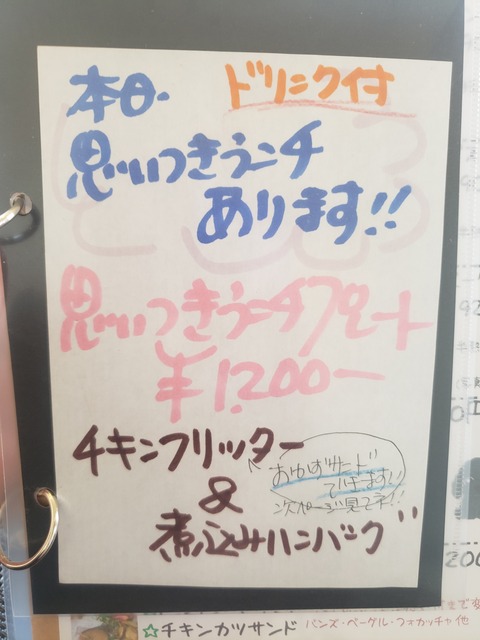 本日 ドリンク付
思いつきランチ
あります!!
思いつきランチプレート
¥1,200ー
チキンフリッター
&
煮込みハンバーグ
次ページ見てネ!!
☆チキンカツサンド バンズ・ベーグル・フォカッチャ他